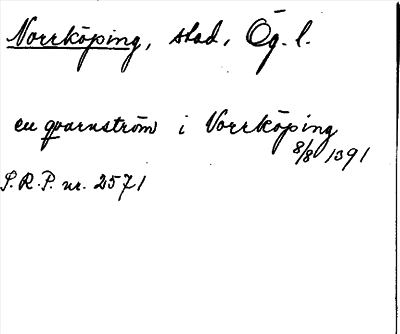 Norrköping, stad, Ög. l.
en qvarnström i Norrköping
8/8 1391
S.R.P. nr. 2571